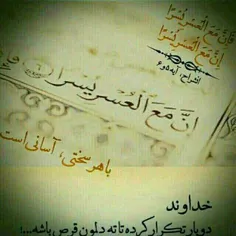 إِنَّ مَعَ الْعُسْرِ يُسْرًا
إِنَّ مَعَ الْعُسْرِ يُسْرًا
انشراح، آیه ۵و۶
إِنَّ مَعَ الْعُسْرِ يُسْرًا
با هر سختی، آسانی است
خداوند
دوبار تکرار کرده تا ته دلمون قرص باشه...!